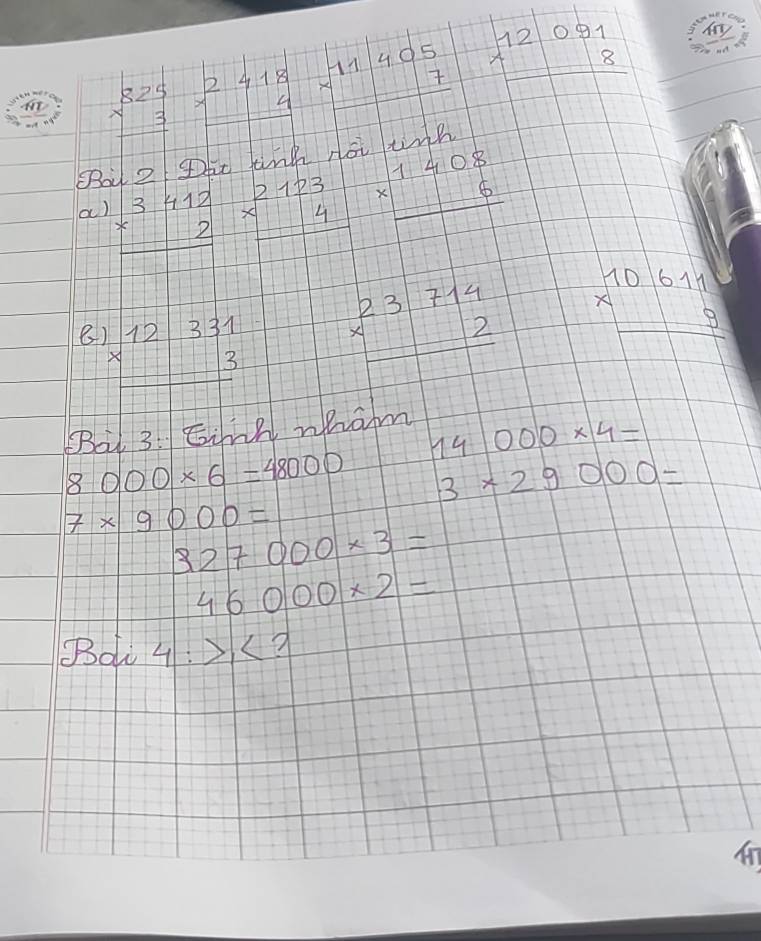 825 2 418 11 405 12 091
× 3 × 4 × 7 × 8
Bài 2: Đặt tính rồi tính
a) 3 412 2 123 1 408
× 2 × 4 × 6
b) 12 331 23 714 10 611
× 3 × 2 × 9
Bài 3: Tính nhẩm
8 000 × 6 = 48000 14 000 × 4 =
7 × 9 000 = 3 × 29 000 =
327 000 × 3 =
46 000 × 2 =
Bài 4: > < ?
HT